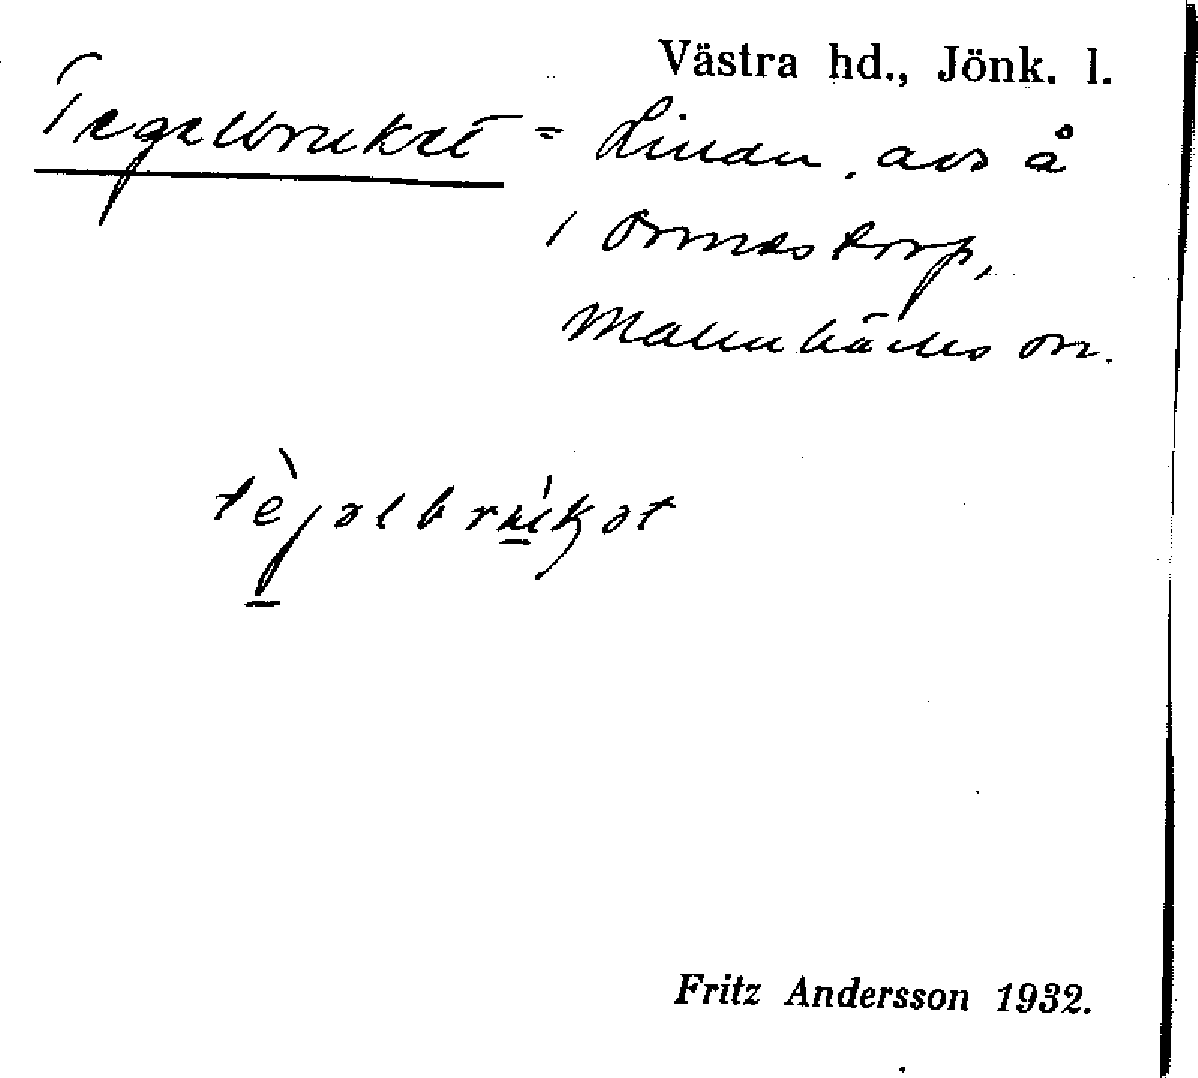 Västra hd., Jönk. l.
Tegelbruket = Lindan, avs å
i Ormestorp,
Malmbäcks sn.
tè̱jəlbrú̱kət
Fritz Andersson 1932.